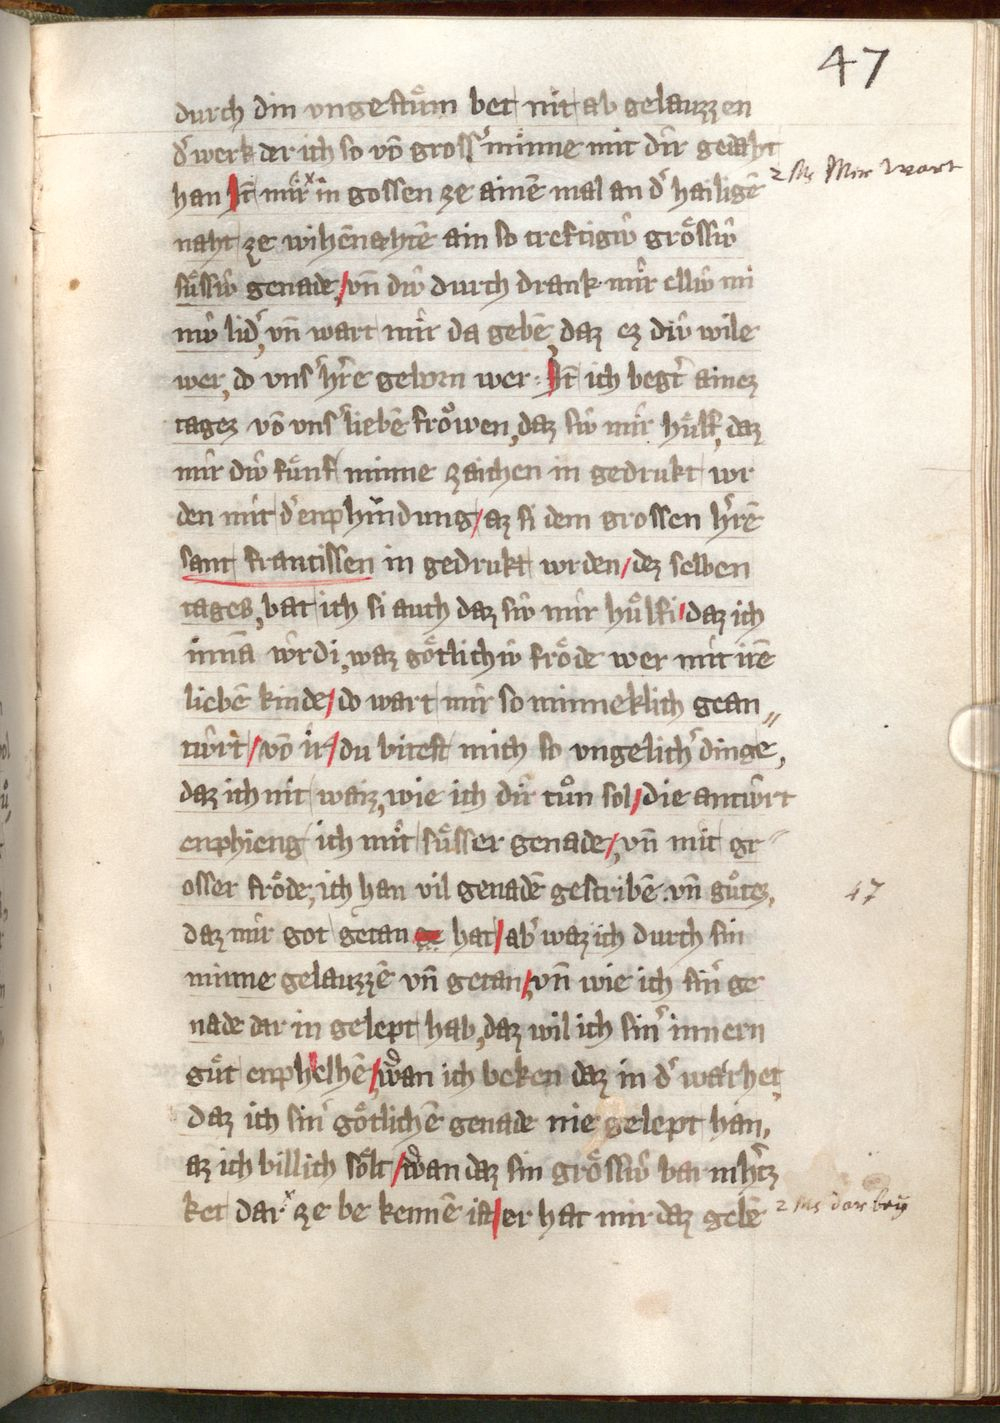 47
durch din vngestuͤm bet nit ab gelauzzen
dˀ werk der ich so vō grossˀ minne mit dir gedaht
han Jt̄ mir in gossen ze ainē mal an dˀ hailigē
2 Ms Mir Wart
naht ze wihēnahtē ain so creftigiv̂ groͤssiv̂
suͤssiv̂ genade / vn̄ div̂ durch drank mir elliv̂ mi
niv̂ lidˀ, vn̄ wart mir da gebē, daz ez div̂ wile
wer, do vnsˀ hˀre geborn wer · Jt̄ ich begˀt ainez
tagez vō vnsˀ liebē froͮwen, daz siv̂ mir huͤlf, daz
mir div̂ fuͤnf minne zaichen in gedrukt wr
den mit dˀ enphindung / az si dem grossen hˀrē
sant francissen in gedrukt wrden / dez selben
tages, bat ich si auch daz siv̂ mir huͤlfi / daz ich
innā wrdi, waz goͤtlichiv̂ froͤde wer mit irē
liebē kinde / do wart mir so minneklich gean〃
twrt / vō ir / du bitest mich so vngelichˀ dinge,
daz ich nit waiz, wie ich dir tuͦn sol / die antwrt
enphieng ich mit suͤsser genade /, vn̄ mit gr〃
osser froͤde, ich han vil genadē gescribē vn̄ guͦtez,
47
daz mir got getan hat / abˀ waz ich durch sin
minne gelauzzē vn̄ getan /, vn̄ wie ich sinˀ ge
nade dar in gelept hab, daz wil ich sinˀ innern
guͤt enphelhē / wan ich beken daz in dˀ warhet,
daz ich sinˀ goͤtlichē genade nie gelept han,
az ich billich soͤlt / wan daz sin groͤssiv̂ barmhˀtz
ket dar ˣ ze be kennē ist / er hat mir daz gebē
2 Ms dar beÿ